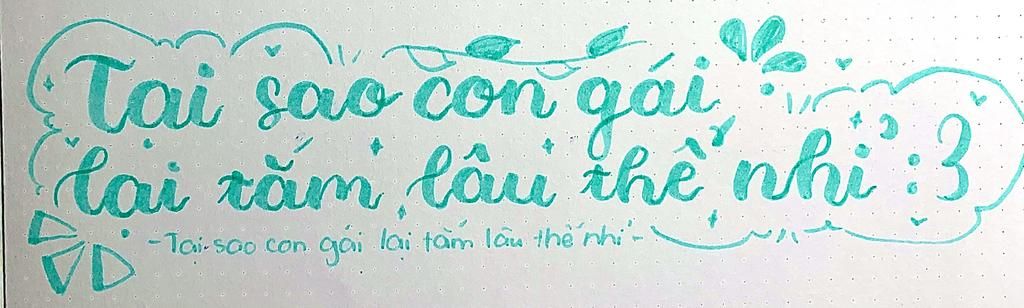 Tại sao con gái
lại tắm lâu thế nhỉ :3
-Tại sao con gái lại tắm lâu thế nhỉ-